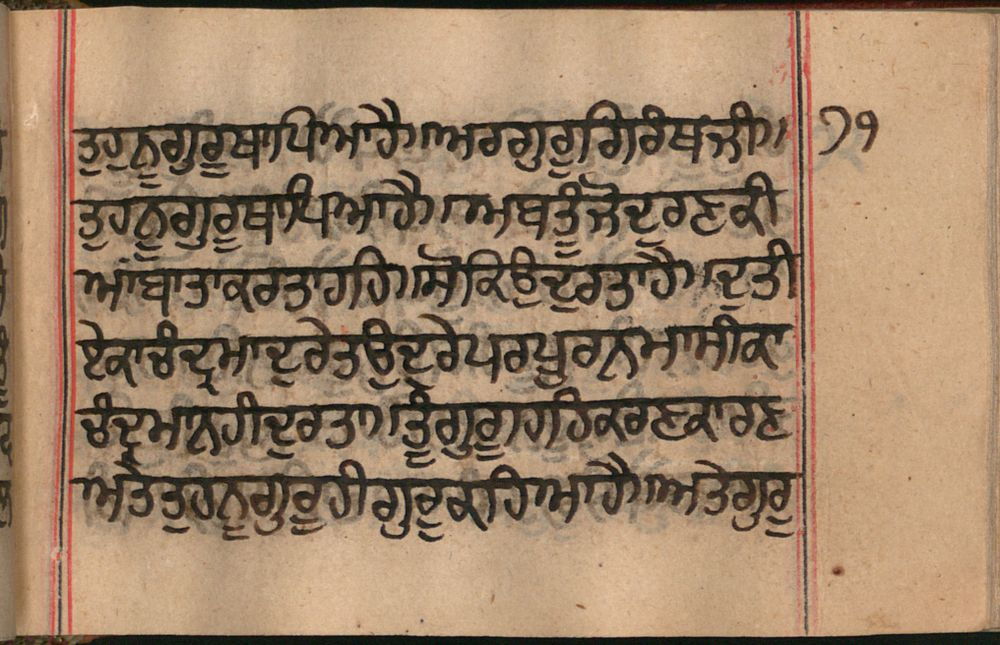 ਤੁਹਨੂਗੁਰੂਥਾਪਿਆਹੈ॥ਅਰਗੁਰੂਗਿਰੰਥਜੀ॥ ੭੧
ਤੁਹਨੂਗੁਰੂਥਾਪਿਆਹੈ॥ਅਬਤੂੰਜੋਦੁਰਣਕੀ
ਆਂਬਾਤਾਕਰਤਾਹਹਿ॥ਸੋਕਿਉਦੁਰਤਾਹੈ॥ਦੁਤੀ
ਏਕਾਚੰਦ੍ਰਮਾਦੁਰੇਤਉਦੁਰੇਪਰਪੂਰਨਮਾਸੀਕਾ
ਚੰਦ੍ਰਮਾਨਹੀਦੁਰਤਾ॥ਤੂੰਗੁਰੂਹਹਿਕਰਣਕਾਰਣ
ਅਤੇਤੁਹਨੂਗੁਰੂਹੀਗੁਰੂਕਹਿਆਹੈ॥ਅਤੇਗੁਰੂ